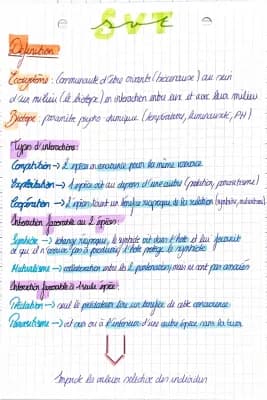 SVT
svt
Définition
Ecosystème : Communauté d'être vivants (biocénose) au sein
d'un milieu (le biotope) en interaction entre eux et avec leur milieu
Biotope : paramètre psycho chimique (température, luminosité, PH)
Types d'interactions :
Compétition → 2 espèces en concurrence pour la même ressource
Exploitation → L'espèce vit au dépend d'une autre (prédation, parasitisme)
Coopération → 2 espèces tirent un bénéfice réciproque de la relation (symbiose, mutualisme)
Interaction favorable au 2 espèces :
Symbiose → échange réciproque, le symbiote vit dans l'hôte et lui fournit
ce qu'il n' pas à l'hôte protège le symbiote
Mutualisme → collaboration entre les 2 partenaires mais ne sont pas associés
Interaction favorable à 1 seule espèce :
Prédation → seul le prédateur tire un bénéfice de cette
Parasitisme → vit sur ou à l'intérieur d'une autre espèce sans la tuer
la valeur sélective des individus